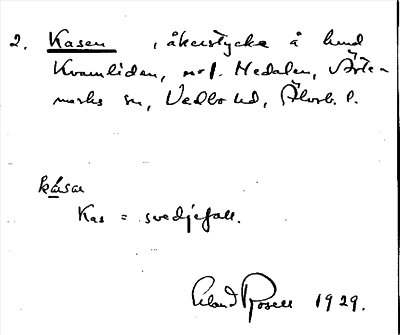 2. Kasen, åkerstycke å hmd
Kvarnliden, Nedalen, Ärte-
marks sn, Vedbo hd, Älvsb. l.
kåsar
Kas = svedjefall.
Rosell 1929.